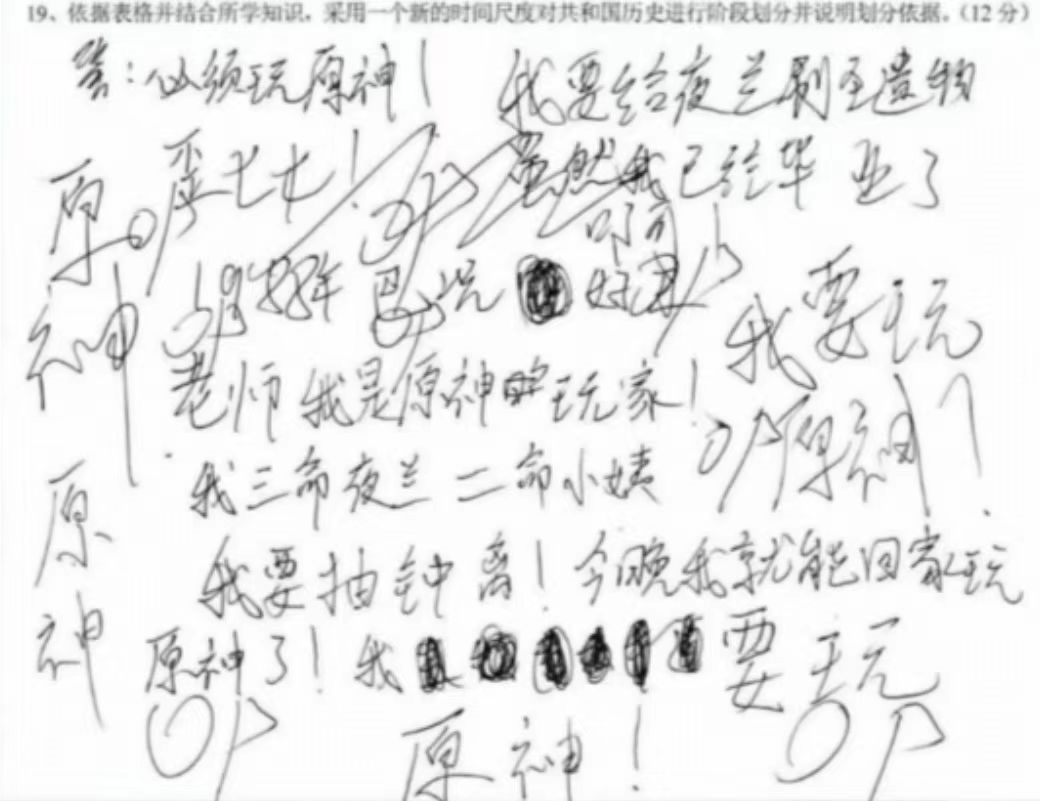 19、依据表格并结合所学知识，采用一个新的时间尺度对共和国历史进行阶段划分并说明划分依据。（12分）
答：必须玩原神！ 我要给夜兰刷圣遗物
原神
七七！ OP 虽然我已经毕业了
叩可
OP
老师 我是原神 玩家！
我要玩
OP原神！
我三命夜兰 二命小姨
原神
我要抽钟离！今晚我就能回家玩
原神了！我 要玩
OP 原神！ OP